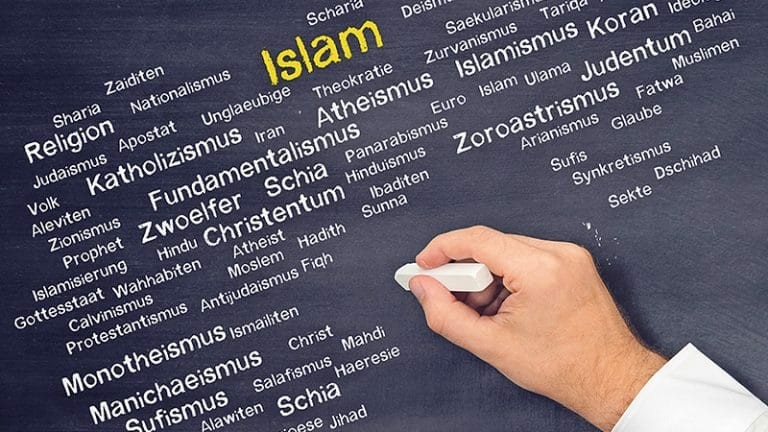 Scharia
Deismus
Saekularismus
Tariqa
Islam
Zurvanismus
Islamismus
Koran
Bahai
Zaiditen
Theokratie
Judentum
Muslimen
Sharia
Nationalismus
Atheismus
Euro Islam
Ulama
Fatwa
Religion
Apostat
Unglaeubige
Zoroastrismus
Glaube
Judaismus
Katholizismus
Iran
Panarabismus
Arianismus
Volk
Fundamentalismus
Hinduismus
Sufis
Synkretismus
Dschihad
Aleviten
Zwoelfer
Schia
Ibaditen
Sekte
Zionismus
Christentum
Sunna
Prophet
Hindu
Atheist
Hadith
Islamisierung
Moslem
Fiqh
Gottesstaat
Wahhabiten
Antijudaismus
Calvinismus
Protestantismus
Monotheismus
Ismailiten
Christ
Mahdi
Manichaeismus
Salafismus
Haeresie
Sufismus
Alawiten
Schia
Jihad